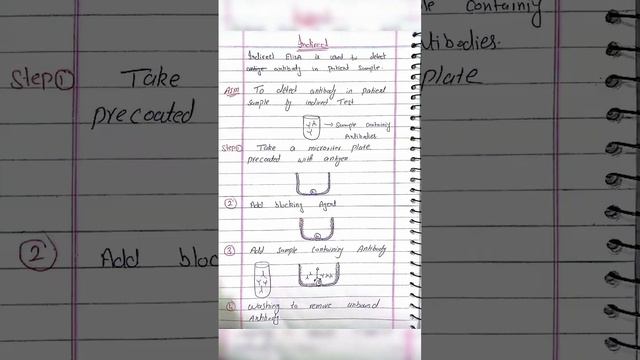 Indirect
Indirect ELISA is used to detect
antige antibody in patient sample.
Aim To detect antibody in patient
sample by indirect Test
→ Sample containing
Antibodies
Step① Take a microtiter plate
precoated with antigen
② Add blocking Agent
③ Add sample containing Antibody
④ Washing to remove unbound
Antibody
Step① Take
precoated
② Add bloc
containing
tibodies.
plate